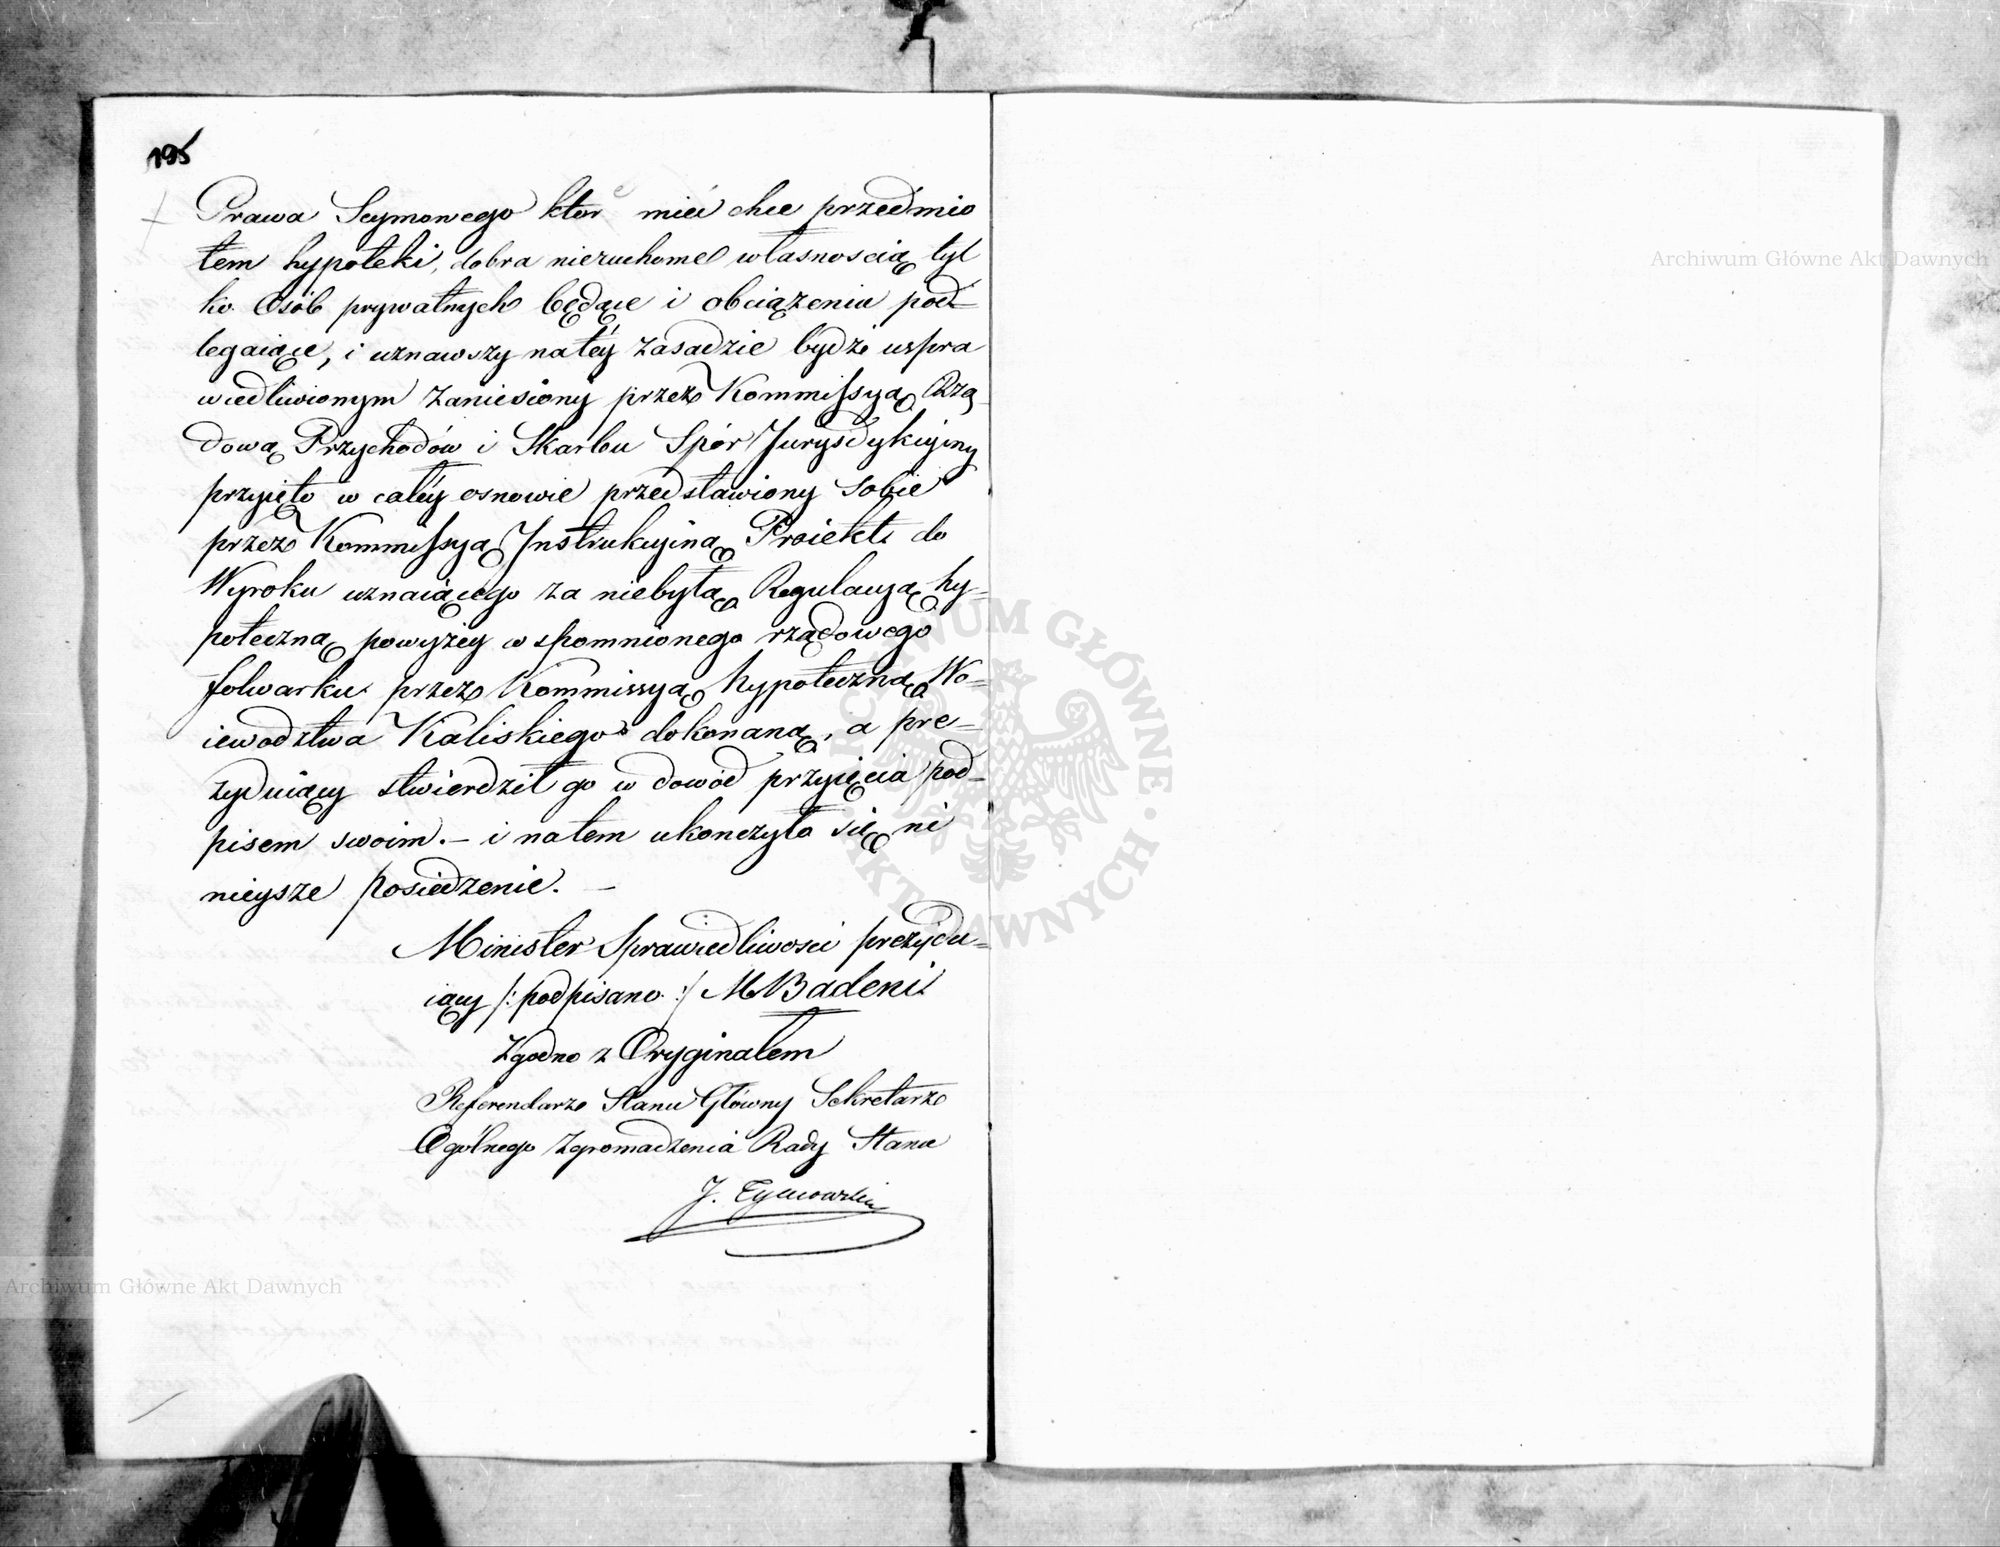 195
Prawa Seymowego które mieć chce przedmio
tem hypoteki, dobra nieruchome własnoscią tyl
ko Osób prywatnych będące i obciążeniu pod-
legaiące, i uznawszy na téy zasadzie bydź uspra
wiedliwionym zaniesiony przez Kommissyą Rzą
dową Przychodów i Skarbu Spór Jurysdykcyiny
przyięto w całéy osnowie przedstawiony sobie
przez Kommissyą Instrukcyiną Proiekt do
Wyroku uznaiącego za niebyłą Regulacyą hy-
poteczną powyżey wspomnionego rządowego
folwarku przez Kommissyą hypoteczną Wo-
iewodztwa Kaliskiego dokonaną, a pre-
zyduiący stwierdził go w dowód przyięcia pod-
pisem swoim. – i na tem ukonczyło się ni
nieysze posiedzenie. –
Minister Sprawiedliwosci prezydu-
iący /: podpisano :/ M Badeni
Zgodno z Oryginałem
Referendarz Stanu Główny Sekretarz
Ogólnego Zgromadzenia Rady Stanu
J. Tymowski
Archiwum Główne Akt Dawnych
Archiwum Główne Akt Dawnych
ARCHIWUM GŁÓWNE AKT DAWNYCH